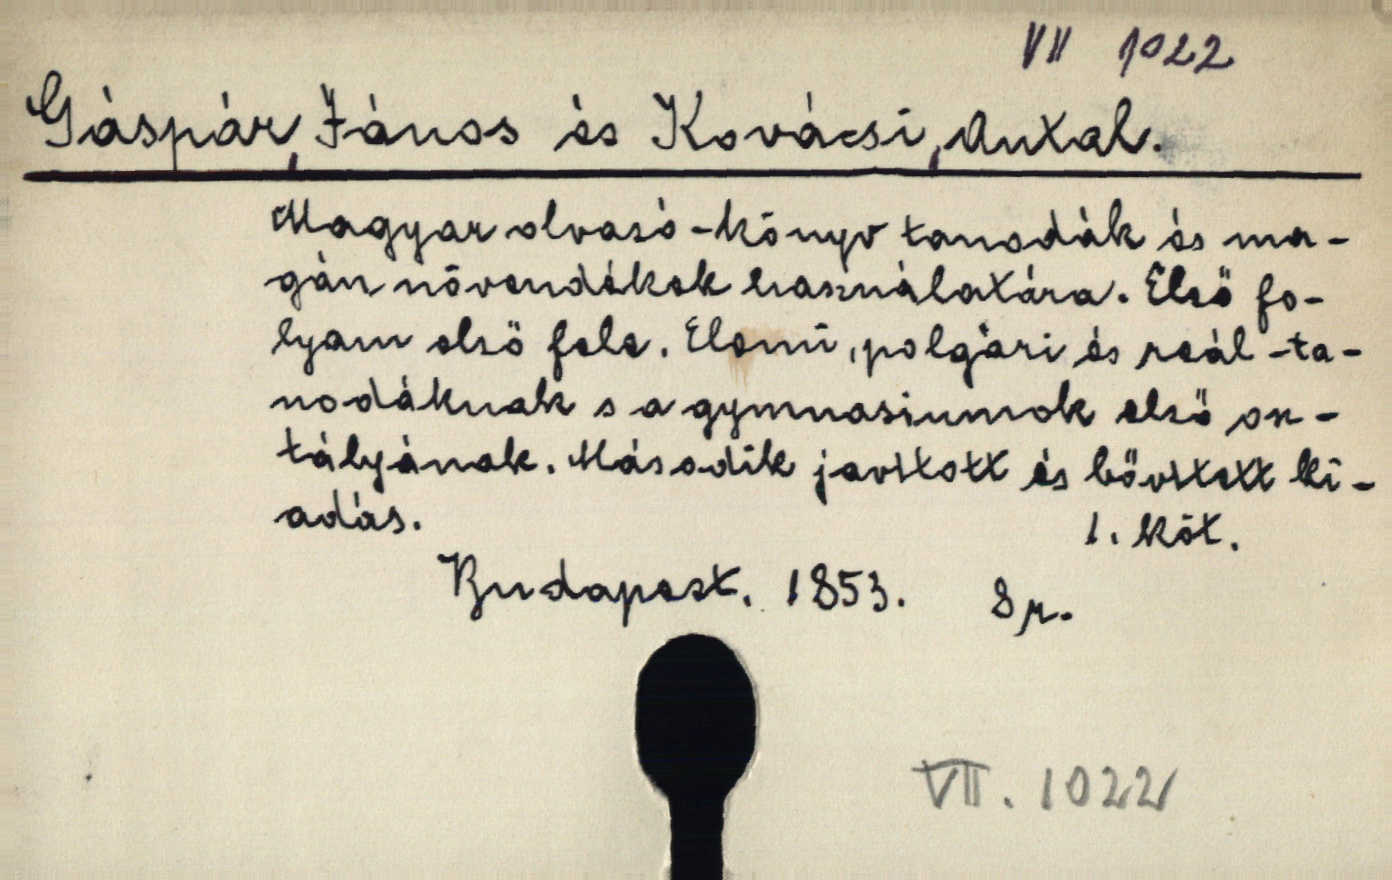 VII 1022
Gáspár, János és Kovácsi, Antal.
Magyar olvasó-könyv tanodák és ma-
gán növendékek használatára. Első fo-
lyam első fele. Elemi, polgári és reál-ta-
nodáknak s a gymnasiumok első osz-
tályának. Második javított és bővített ki-
adás. 1. köt.
Budapest. 1853. 8r.
VII. 1022